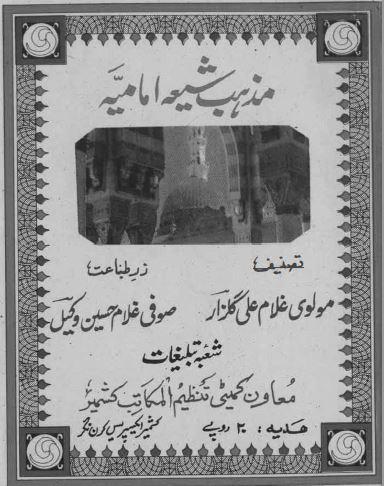 مذہب شیعہ امامیہ
تصنیف؛ زرِ طباعت؛
مولوی غلام علی گلزار صوفی غلام حسین وکیل
شعبہ تبلیغات
معاون کمیٹی تنظیم المکاتب کشمیر
ھدیہ : ۲۰ روپے کشمیر ایکسپریس کرن نگر